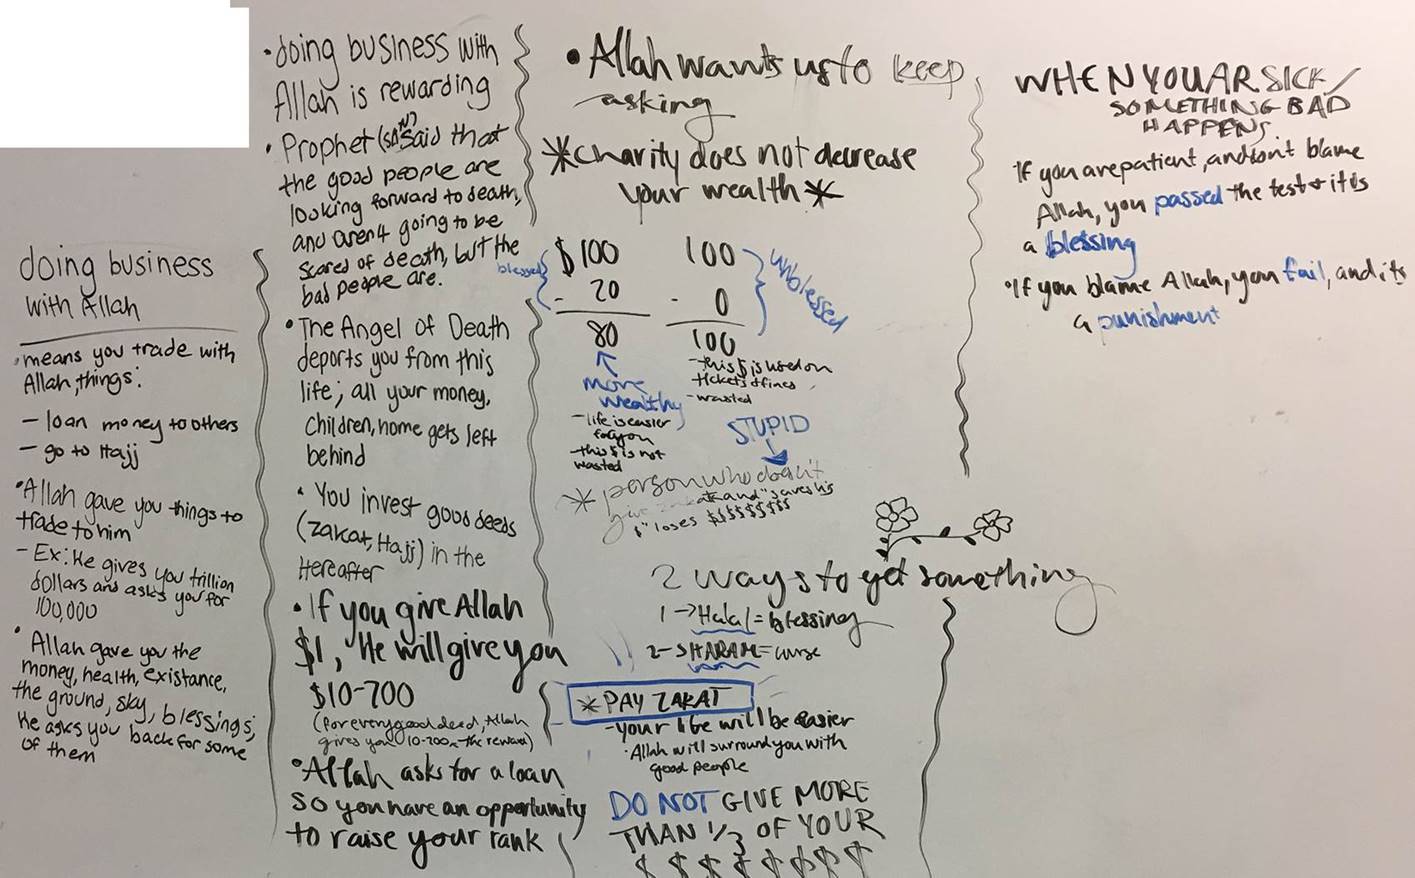 doing business
with Allah
• means you trade with
Allah, things:
- loan money to others
- go to Hajj
• Allah gave you things to
trade to him
- Ex: He gives you trillion
dollars and asks you for
100,000
• Allah gave you the
money, health, existance,
the ground, sky, blessings;
He asks you back for some
of them
• doing business with
Allah is rewarding
• Prophet (SAW) said that
the good people are
looking forward to death,
and aren't going to be
scared of death, but the
bad people are.
• The Angel of Death
deports you from this
life; all your money,
children, home gets left
behind
• You invest good deeds
(zakat, Hajj) in the
Hereafter
• If you give Allah
$1, He will give you
$10-700
(for every good deed, Allah
gives you 10-700x the reward)
• Allah asks for a loan
so you have an opportunity
to raise your rank
• Allah wants us to keep
asking
*charity does not decrease
your wealth*
blessed
$100
- 20
80
more
wealthy
- life is easier
for you
- this $ is not
wasted
100
- 0
100
unblessed
- this $ is used on
tickets & fines
- wasted
STUPID
* person who doesn't
give zakat and "saves his
$" loses $$$$$$$$$
2 ways to get something
1 → Halal = blessing
2 → HARAM = curse
* PAY ZAKAT
- your life will be easier
• Allah will surround you with
good people
DO NOT GIVE MORE
THAN 1/3 OF YOUR
$ $ $ $ $ $ $ $
WHEN YOU AR SICK/
SOMETHING BAD
HAPPENS.
• If you are patient, and don't blame
Allah, you passed the test & it is
a blessing
• If you blame Allah, you fail, and its
a punishment